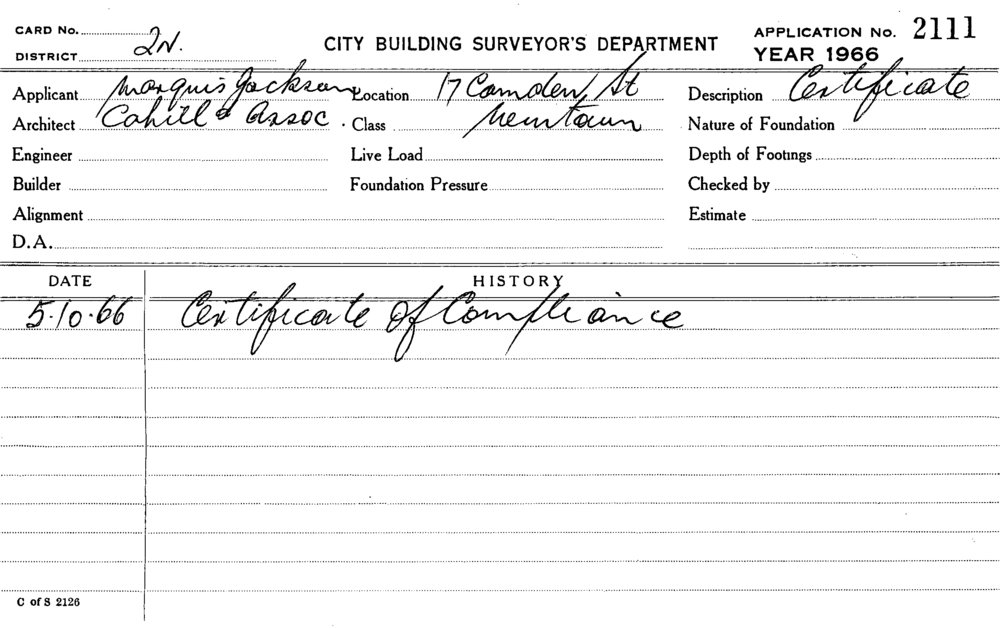 CARD No.
DISTRICT 2N.
CITY BUILDING SURVEYOR'S DEPARTMENT
APPLICATION No. 2111
YEAR 1966
Applicant Marquis Jackson Location 17 Camden St Description Certificate
Architect Cahill & Assoc. Class Newtown Nature of Foundation
Engineer Live Load Depth of Footings
Builder Foundation Pressure Checked by
Alignment Estimate
D.A.
DATE HISTORY
5.10.66 Certificate of Compliance
C of S 2126